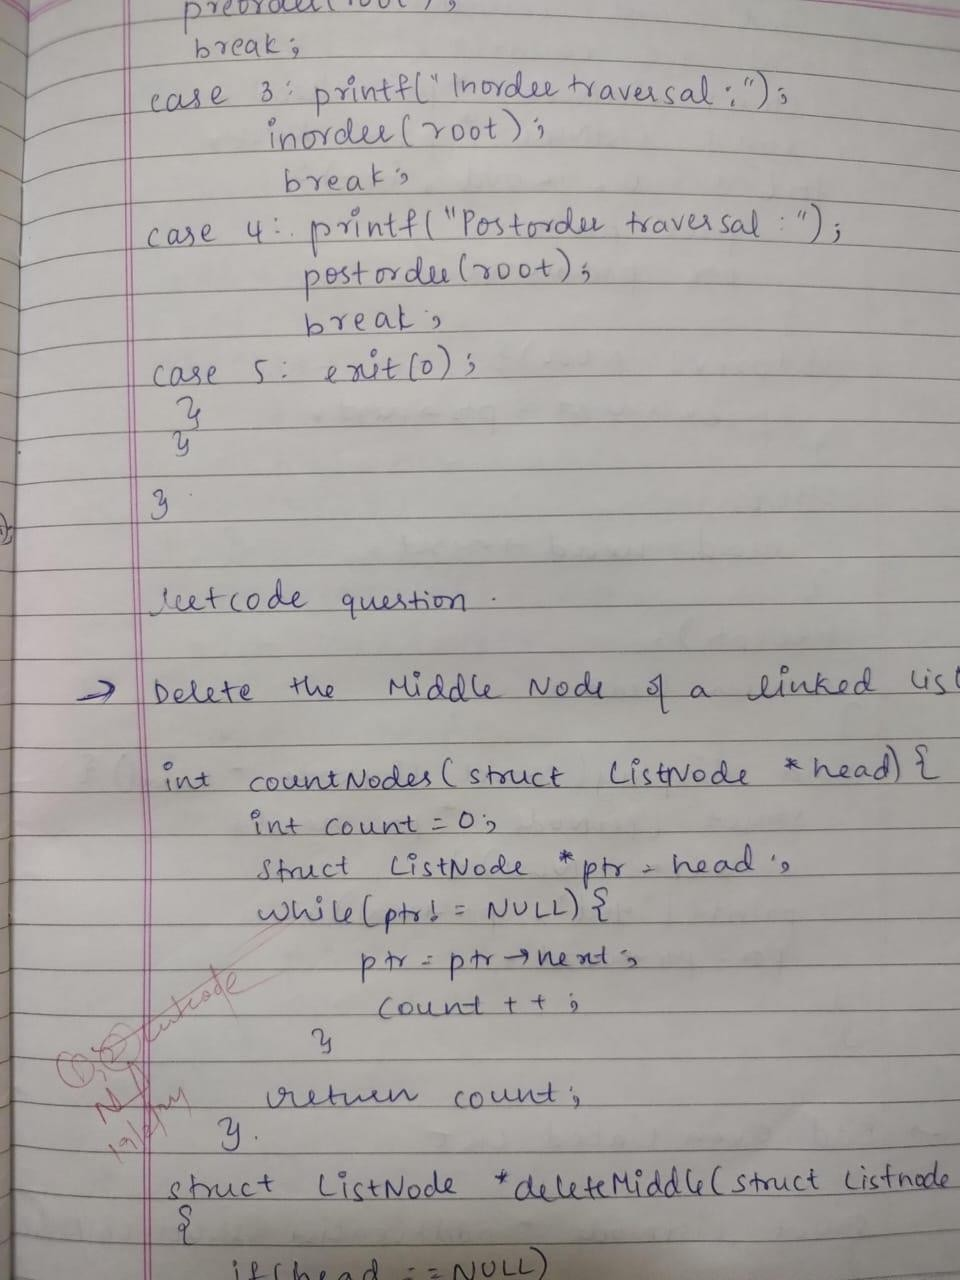 preorder(root);
break;
case 3: printf("Inorder traversal:");
inorder(root);
break;
case 4: printf("Postorder traversal:");
postorder(root);
break;
case 5: exit(0);
}
}
}
leetcode question.
→ Delete the Middle Node of a linked list
int countNodes(struct ListNode *head) {
int count = 0;
struct ListNode *ptr = head;
while(ptr! = NULL) {
ptr = ptr→next;
count ++;
}
return count;
}.
leetcode
struct ListNode *deleteMiddle(struct Listnode
{
if(head == NULL)